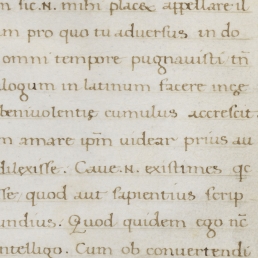 n sic .N. mihi placet appellare il
am pro quo tu adversus in do
omni tempore pugnavisti tñ
logum in latinum facere inge
benivolentię cumulus accrescit
n amare ip̃m videar prius au
dilexisse. Cave .N. existimes
sse quod aut sapientius scrip
undius. Quod quidem ego nc̃
ntelligo. Cum ob convertendi